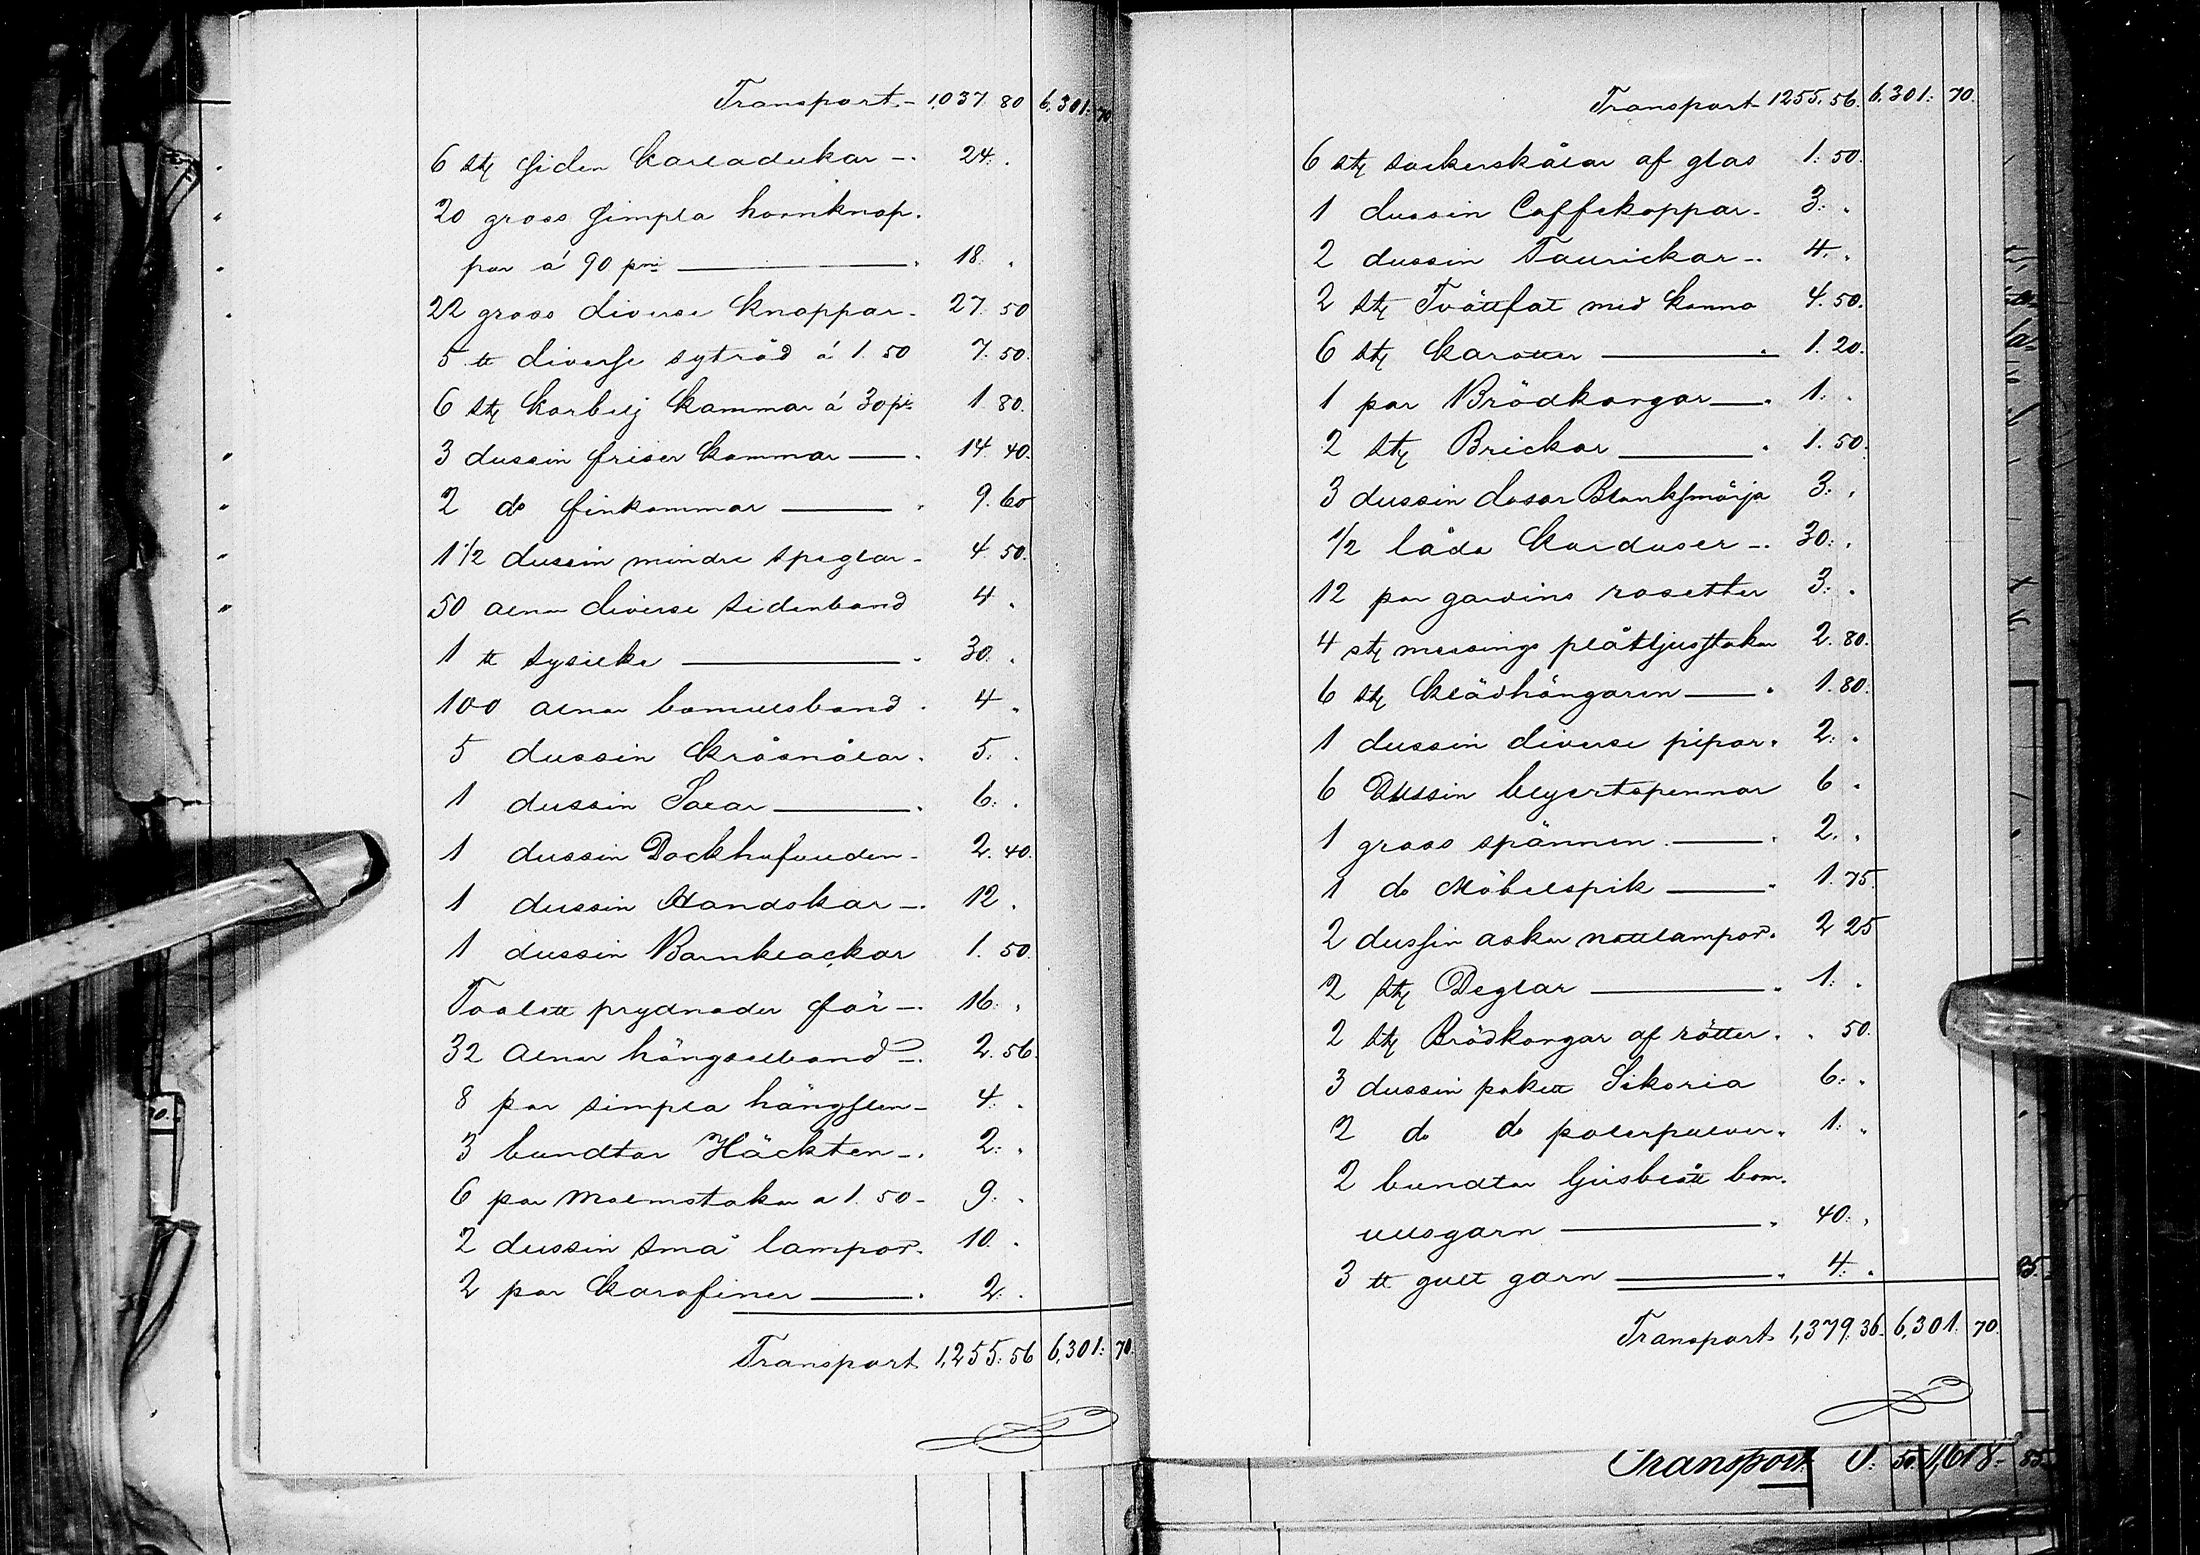 Transport - 1,037. 80 6,301: 70
6 stq siden halsdukar -. 24. .
20 gross simpla hornknap.
par á 90 pni — . 18. .
22 gross diverse knappar. 27. 50
5 ℔ diverse sytråd á 1. 50 7. 50.
6 stq kambilj kammar á 30 pi 1. 80.
3 dussin friser kammar — . 14. 40.
2 do finkammar — . 9. 60
1 1/2 dussin mindre speglar - 4. 50.
50 alnar diverse sidenband 4 .
1 ℔ sysilke — . 30. .
100 alnar bomullsband . 4 .
5 dussin kråsnålar . 5. .
1 dussin Saxar — . 6: .
1 dussin Dockhufvuden - 2. 40.
1 dussin Handskar -. 12 .
1 dussin Barnklackar 1. 50.
Toalett prydnader för -. 16: .
32 Alnar hängselband -. 2. 56.
8 par simpla hängslen - 4: .
3 bundtar Häckten -. 2: .
6 par malmstakar a 1. 50 - 9: .
2 dussin små lampor. 10. .
2 par karafiner — . 2. .
Transport 1,255: 56 6,301: 70.
Transport 1255. 56. 6,301: 70.
6 stq sockerskålar af glas 1: 50.
1 dussin Caffekoppar. 3: .
2 dussin Taurickar -. 4. .
2 stq Tvättfat med kanna 4. 50.
6 stq karotter — . 1. 20.
1 par Brödkorgar — . 1: .
2 stq Brickor — . 1. 50.
3 dussin dosor Blanksmörja 3: .
1/2 låda karduser -. 30: .
12 par gardins rosetter 3: .
4 stq messings plåtljusstakar 2. 80.
6 stq klädhängaren — . 1. 80.
1 dussin diverse pipor. 2: .
6 Dussin blyertspennor 6 .
1 gross spännen. — . 2. .
1 do Möbelspik — . 1. 75.
2 dussin askar nattlampor. 2 25
2 stq Deglar — . 1: .
2 stq Brödkorgar af rötter. . 50.
3 dussin paket Sikoria 6: .
2 do do polerpulver. 1: .
2 bundtar ljusblått bom.
ullsgarn — . 40: .
3 ℔ gult garn — . 4: .
Transport. 1,379. 36. 6,301. 70.
Transport